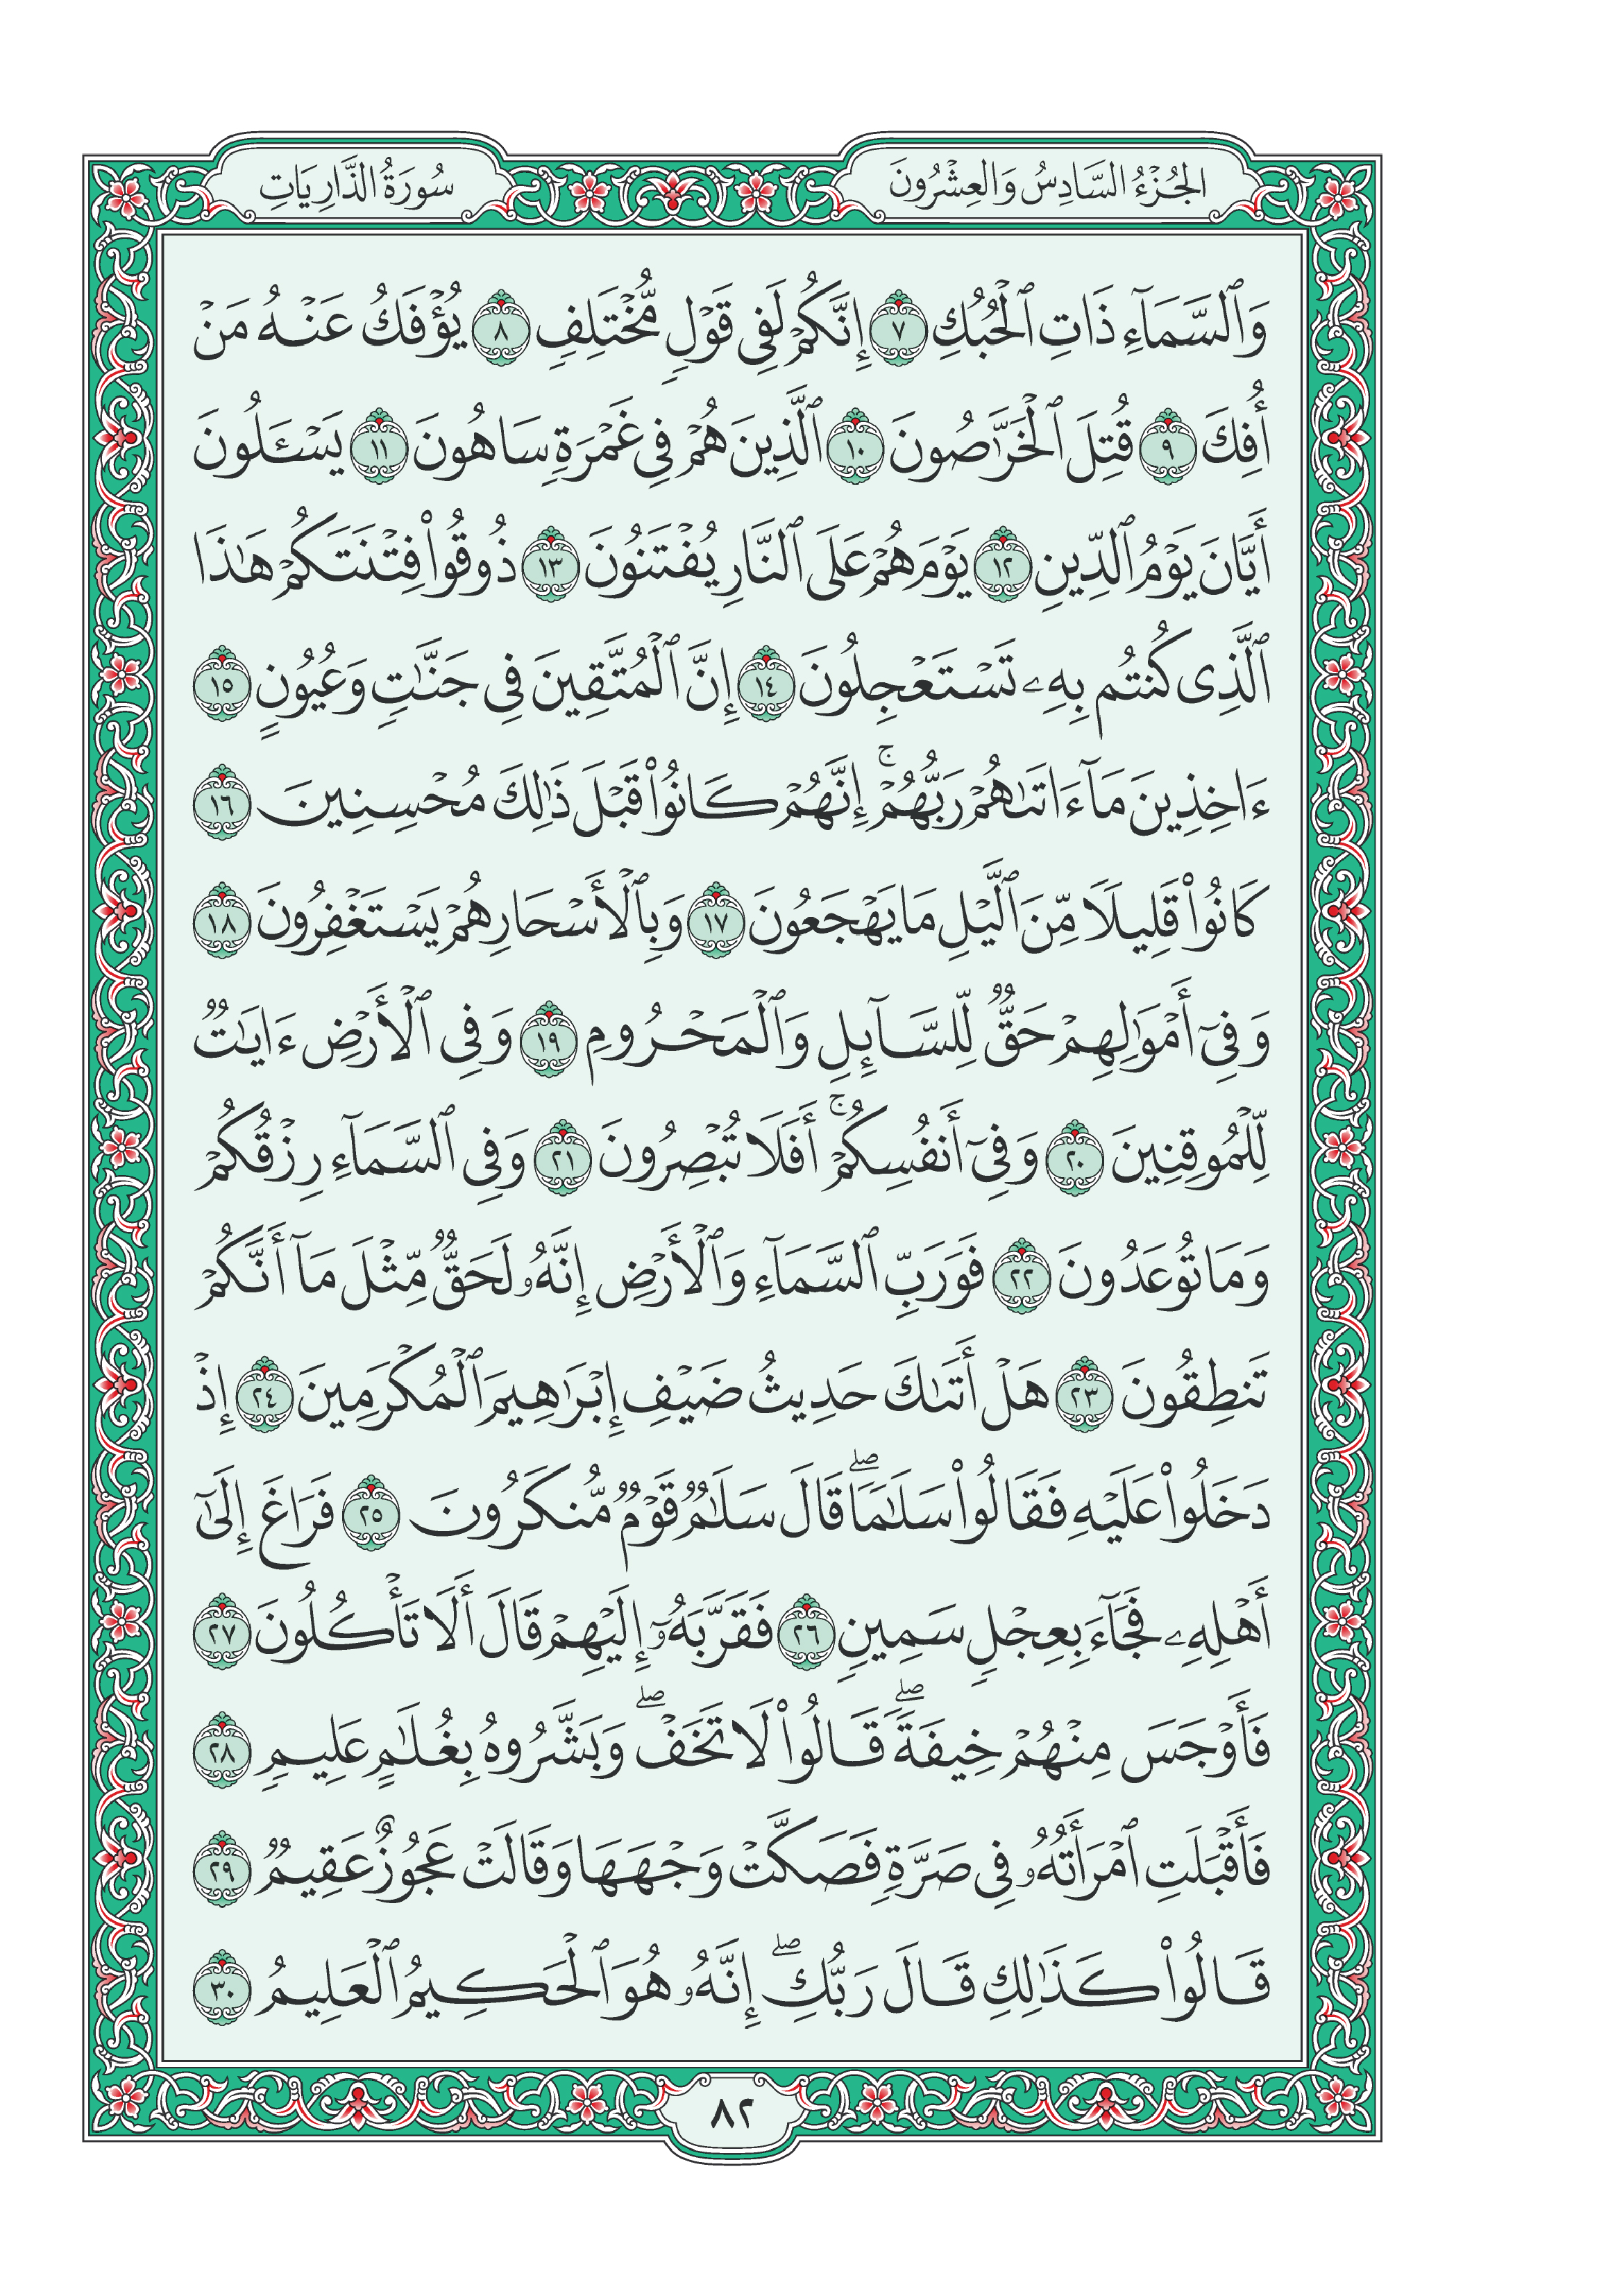 الجُزْءُ السَّادِسُ وَالعِشْرُونَ
سُورَةُ الذَّارِيَاتِ
وَٱلسَّمَآءِ ذَاتِ ٱلْحُبُكِ ٧ إِنَّكُمْ لَفِى قَوْلٍ مُّخْتَلِفٍ ٨ يُؤْفَكُ عَنْهُ مَنْ
أُفِكَ ٩ قُتِلَ ٱلْخَرَّٰصُونَ ١٠ ٱلَّذِينَ هُمْ فِى غَمْرَةٍ سَاهُونَ ١١ يَسْـَٔلُونَ
أَيَّانَ يَوْمُ ٱلدِّينِ ١٢ يَوْمَ هُمْ عَلَى ٱلنَّارِ يُفْتَنُونَ ١٣ ذُوقُوا۟ فِتْنَتَكُمْ هَٰذَا
ٱلَّذِى كُنتُم بِهِۦ تَسْتَعْجِلُونَ ١٤ إِنَّ ٱلْمُتَّقِينَ فِى جَنَّٰتٍ وَعُيُونٍ ١٥
ءَاخِذِينَ مَآ ءَاتَىٰهُمْ رَبُّهُمْ ۚ إِنَّهُمْ كَانُوا۟ قَبْلَ ذَٰلِكَ مُحْسِنِينَ ١٦
كَانُوا۟ قَلِيلًا مِّنَ ٱلَّيْلِ مَا يَهْجَعُونَ ١٧ وَبِٱلْأَسْحَارِ هُمْ يَسْتَغْفِرُونَ ١٨
وَفِىٓ أَمْوَٰلِهِمْ حَقٌّ لِّلسَّآئِلِ وَٱلْمَحْرُومِ ١٩ وَفِى ٱلْأَرْضِ ءَايَٰتٌ
لِّلْمُوقِنِينَ ٢٠ وَفِىٓ أَنفُسِكُمْ ۚ أَفَلَا تُبْصِرُونَ ٢١ وَفِى ٱلسَّمَآءِ رِزْقُكُمْ
وَمَا تُوعَدُونَ ٢٢ فَوَرَبِّ ٱلسَّمَآءِ وَٱلْأَرْضِ إِنَّهُۥ لَحَقٌّ مِّثْلَ مَآ أَنَّكُمْ
تَنطِقُونَ ٢٣ هَلْ أَتَىٰكَ حَدِيثُ ضَيْفِ إِبْرَٰهِيمَ ٱلْمُكْرَمِينَ ٢٤ إِذْ
دَخَلُوا۟ عَلَيْهِ فَقَالُوا۟ سَلَٰمًا ۖ قَالَ سَلَٰمٌ قَوْمٌ مُّنكَرُونَ ٢٥ فَرَاغَ إِلَىٰٓ
أَهْلِهِۦ فَجَآءَ بِعِجْلٍ سَمِينٍ ٢٦ فَقَرَّبَهُۥٓ إِلَيْهِمْ قَالَ أَلَا تَأْكُلُونَ ٢٧
فَأَوْجَسَ مِنْهُمْ خِيفَةً ۖ قَالُوا۟ لَا تَخَفْ ۖ وَبَشَّرُوهُ بِغُلَٰمٍ عَلِيمٍ ٢٨
فَأَقْبَلَتِ ٱمْرَأَتُهُۥ فِى صَرَّةٍ فَصَكَّتْ وَجْهَهَا وَقَالَتْ عَجُوزٌ عَقِيمٌ ٢٩
قَالُوا۟ كَذَٰلِكِ قَالَ رَبُّكِ ۖ إِنَّهُۥ هُوَ ٱلْحَكِيمُ ٱلْعَلِيمُ ٣٠
٨٢